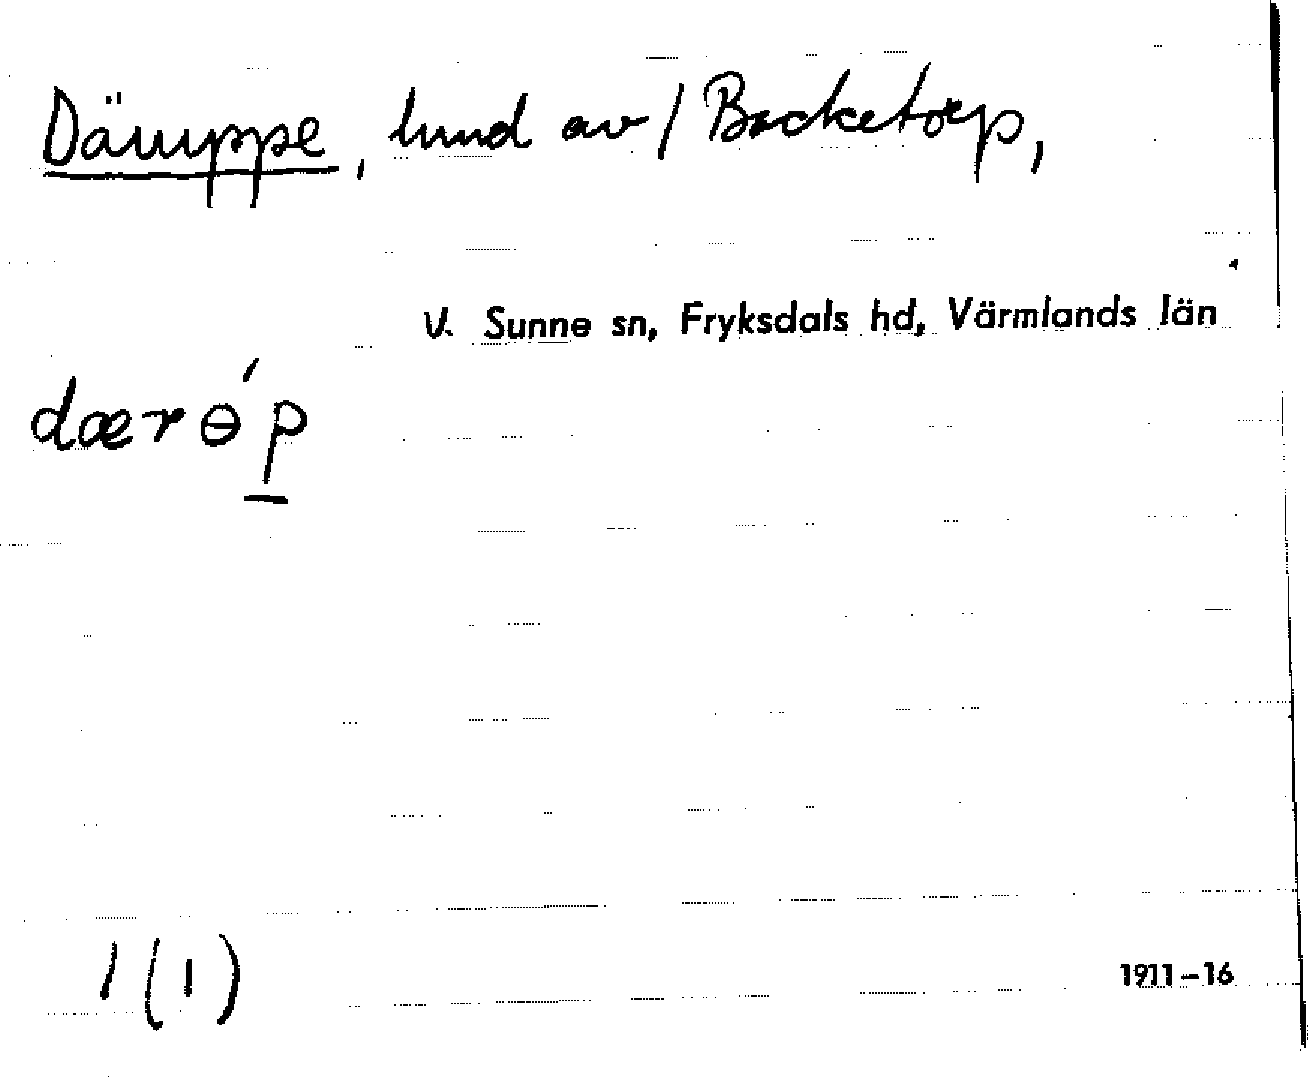 Däruppe, lund av / Backetorp,
V. Sunne sn, Fryksdals hd, Värmlands län
dærɵ́p
1 (1)
1911-16